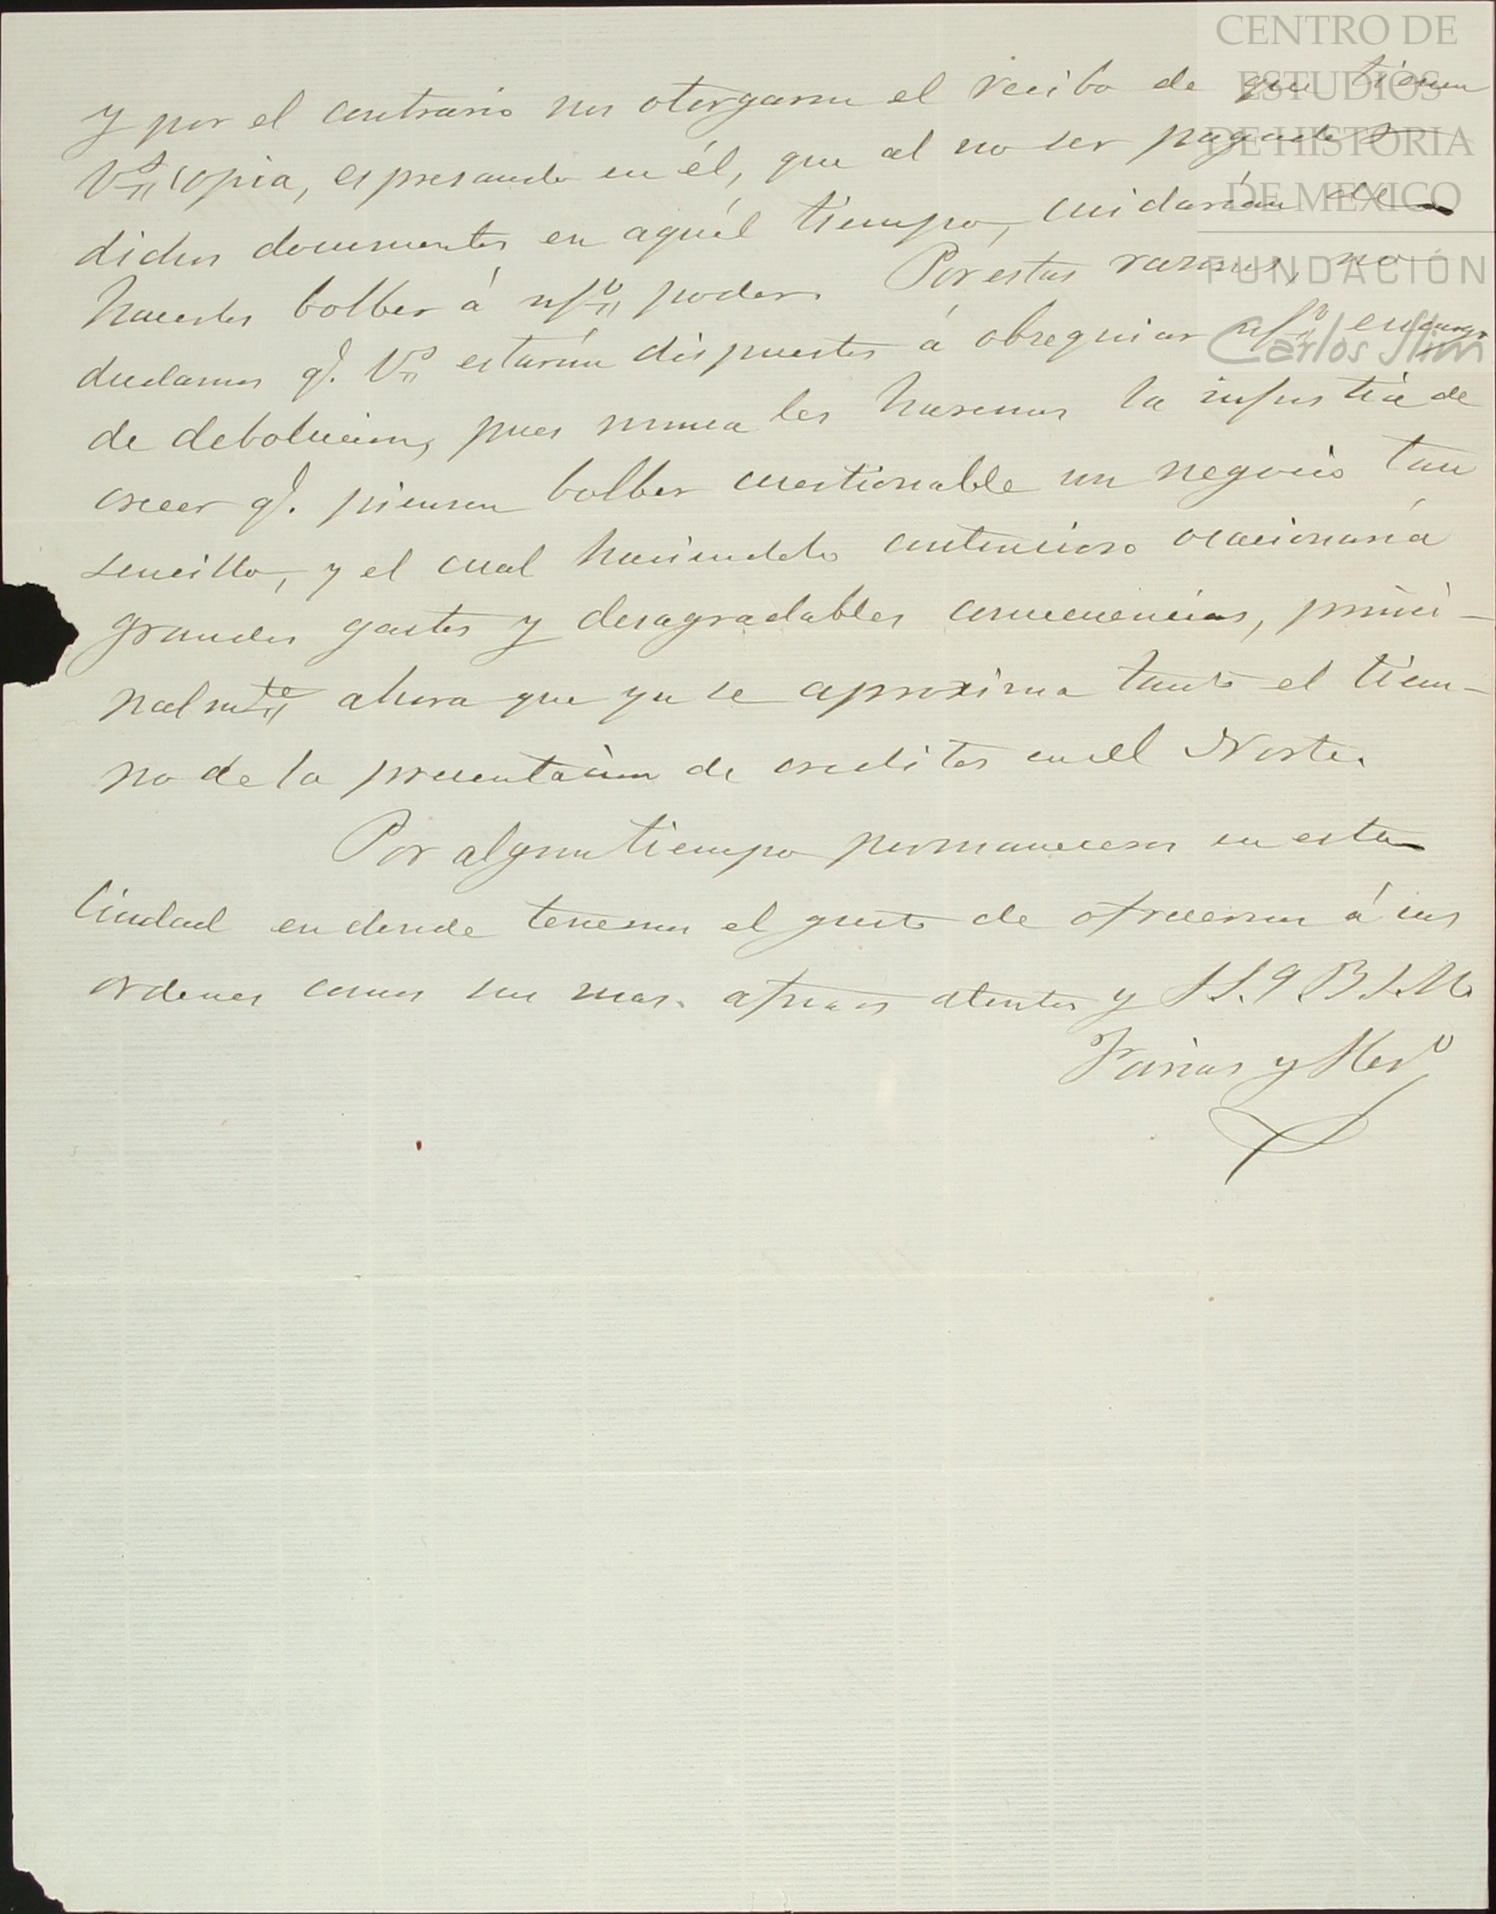 CENTRO DE
ESTUDIOS
DE HISTORIA
DE MEXICO
FUNDACIÓN
Carlos Slim
y por el contrario nos otorgaron el recibo de que tienen
Vs copia, espresando en él, que al no ser pagados
dichos documentos en aquél tiempo, cuidarían de
hacerlos bolber á nfro poder. Por estas razones, no
dudamos q. Vs estarán dispuestos á obsequiar nfro encargo
de debolucion, pues nunca les haremos la injusticia de
creer q. piensen bolber cuestionable un negocio tan
sencillo, y el cual haciendolo contencioso ocacionaría
grandes gastos y desagradables consecuencias, princi-
palmte ahora que ya se aproxima tanto el tiem-
po de la presentacion de creditos en el Norte.
Por algun tiempo permaneceremos en esta
Ciudad en donde tenemos el gusto de ofrecernos á sus
ordenes como sus mas afmos atentos y S.S.q.B.S.M.
Farias y Hero